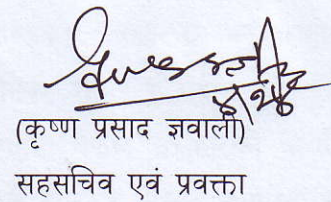 (कृष्ण प्रसाद ज्ञवाली)
सहसचिव एवं प्रवक्ता